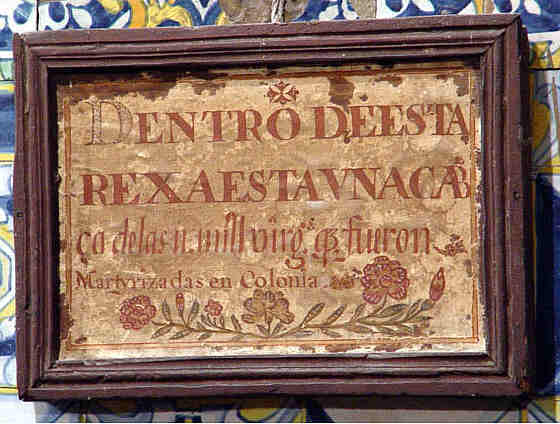 DENTRO DEESTA
REXAESTAVNACAB
ça delas 11 mill virg.s q̃ fueron
Martyrizadas en Colonia.